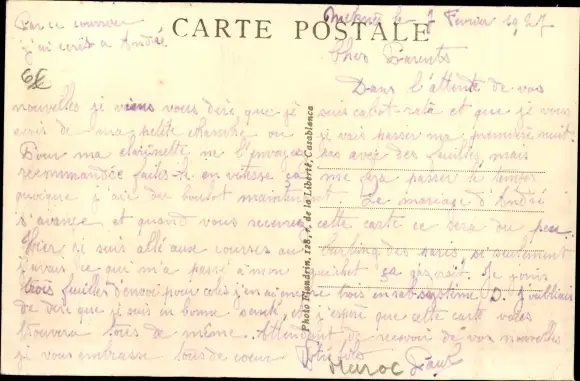 Par ce courrier
j'ai écris à André
CARTE POSTALE
Meknès le 7 Février 1927
Chers Parents
Dans l'attente de vos
nouvelles je viens vous dire que je suis cabot-rata et que je vous
écris de ma petite chambre où je vais passer ma première nuit.
Pour ma clarinette ne l'envoyez pas avec des feuilles mais
recommandée faites-le en vitesse ça me fera passer le temps
quoique j'aie du boulot maintenant. Le mariage d'André
s'avance et quand vous recevrez cette carte ce sera du peu.
Hier je suis allé aux courses au des paris, si seulement
j'avais ce qui m'a passé à mon guichet ça gazerait. Je joins
trois feuilles d'envoi pour colis j'en ai encore trois en sub D. J'oubliais
de dire que je suis en bonne santé, et j'espère que cette carte vous
trouvera tous de même. Attendant de recevoir de vos nouvelles
je vous embrasse tous de coeur Votre fils
Maroc Jean
Photo Flandrin, 128, r. de la Liberté, Casablanca